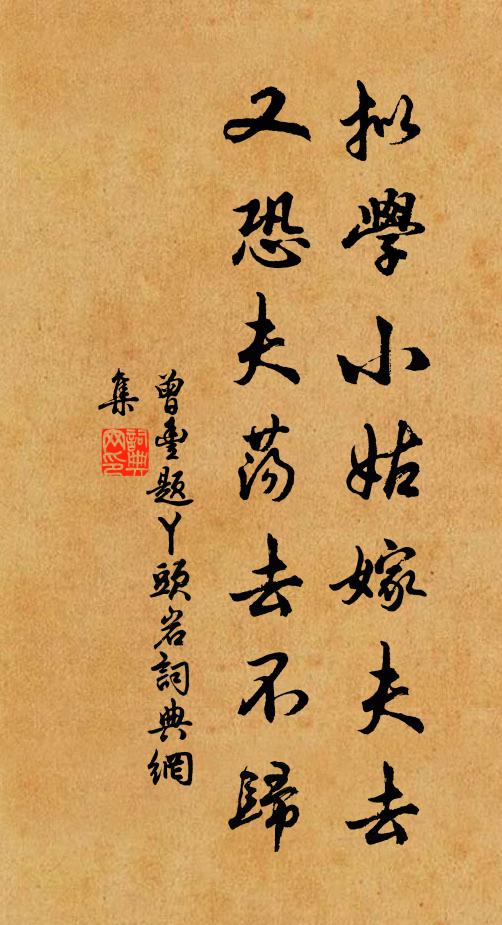 拟學小姑嫁夫去
又恐夫荡去不歸
曾豐题丫頭岩詞典網
集
詞典
网印